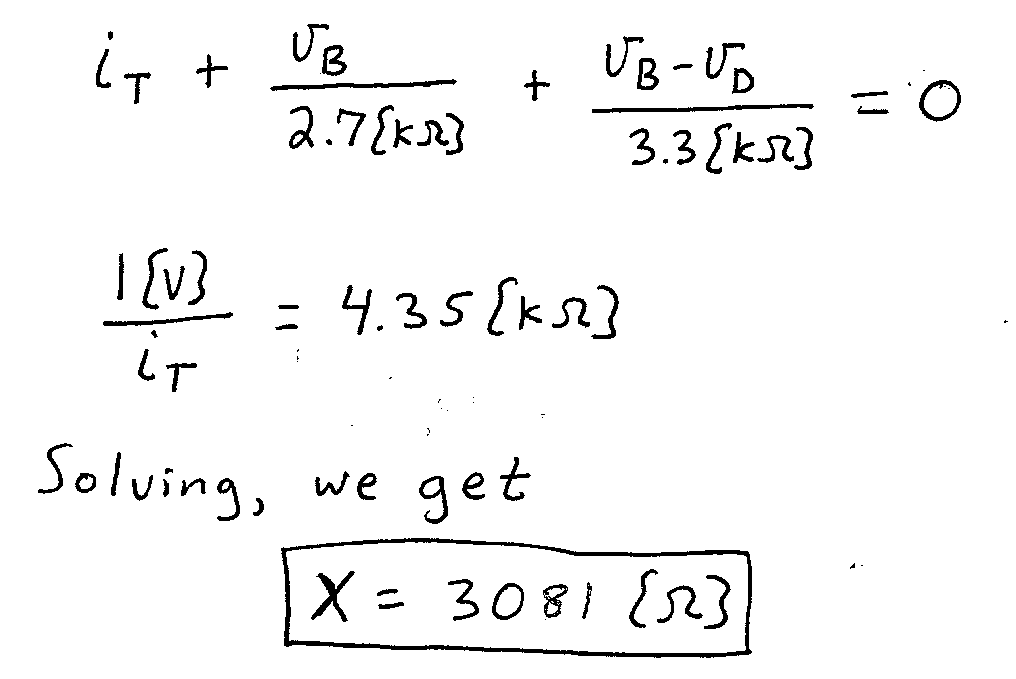 i_T + v_B / 2.7{kΩ} + (v_B - v_D) / 3.3{kΩ} = 0
1{V} / i_T = 4.35{kΩ}
Solving, we get
X = 3081 {Ω}